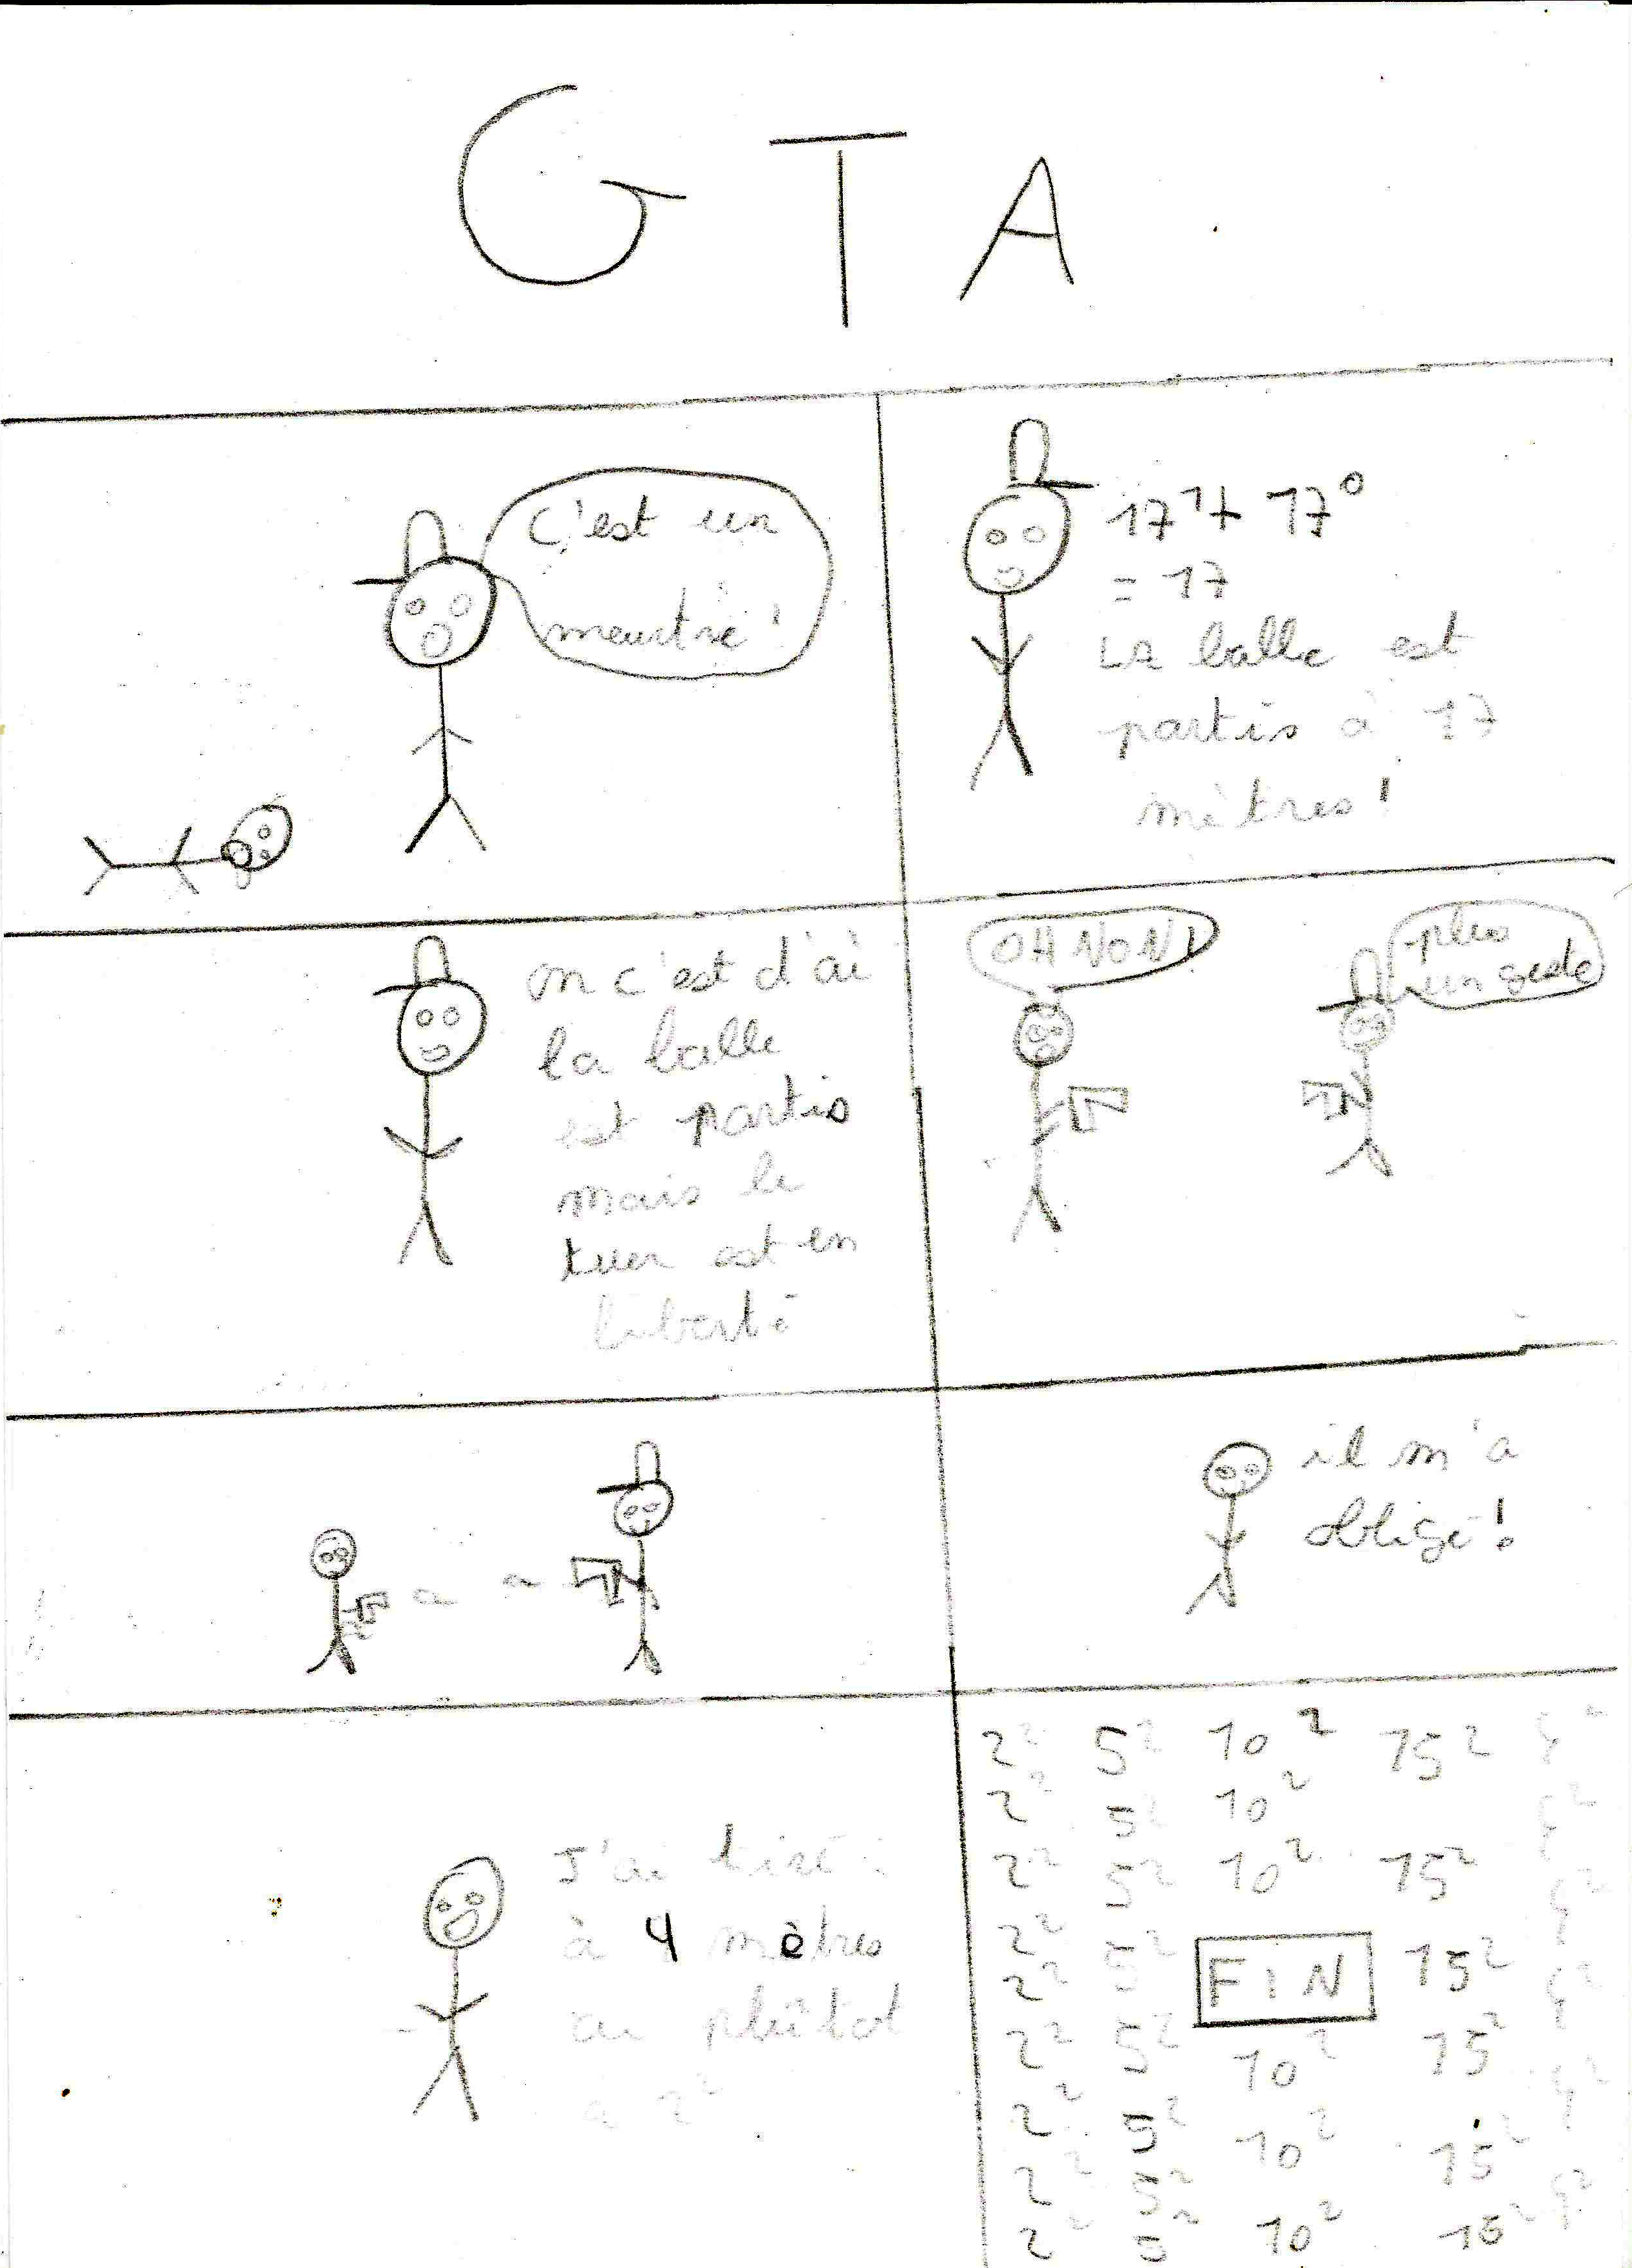 GTA
C'est un
meurtre !
17¹+ 17⁰
= 17
LA balle est
partis à 17
mètres !
on c'est d'ai
la balle
est partis
mais le
tuer est en
liberté
OH NON !
plus
un geste
il m'a
obligé !
J'ai tiré
à 4 mètres
ou plûtot
a 2²
2² 5² 10² 15²
2² 5² 10²
2² 5² 10² 15²
2² 5²
FIN 15²
2²
2² 5² 10² 15²
2² 5² 10² 15²
2² 5²
2² 5² 10² 15²